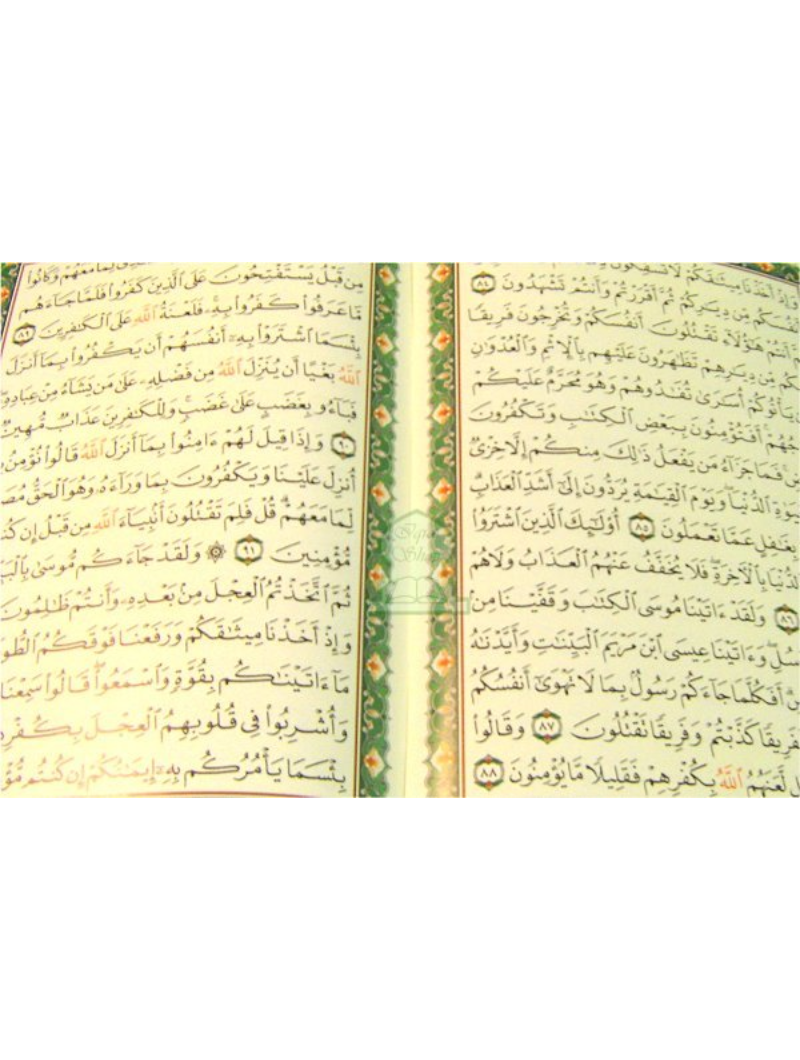 وَإِذْ أَخَذْنَا مِيثَٰقَكُمْ لَا تَسْفِكُونَ
أَنفُسَكُم مِّن دِيَٰرِكُمْ ثُمَّ أَقْرَرْتُمْ وَأَنتُمْ تَشْهَدُونَ ٨٤
أَنتُمْ هَٰٓؤُلَآءِ تَقْتُلُونَ أَنفُسَكُمْ وَتُخْرِجُونَ فَرِيقًا
مِّنكُم مِّن دِيَٰرِهِمْ تَظَٰهَرُونَ عَلَيْهِم بِٱلْإِثْمِ وَٱلْعُدْوَٰنِ
يَأْتُوكُمْ أُسَٰرَىٰ تُفَٰدُوهُمْ وَهُوَ مُحَرَّمٌ عَلَيْكُمْ
أَفَتُؤْمِنُونَ بِبَعْضِ ٱلْكِتَٰبِ وَتَكْفُرُونَ
فَمَا جَزَآءُ مَن يَفْعَلُ ذَٰلِكَ مِنكُمْ إِلَّا خِزْىٌ
ٱلدُّنْيَا وَيَوْمَ ٱلْقِيَٰمَةِ يُرَدُّونَ إِلَىٰٓ أَشَدِّ ٱلْعَذَابِ
بِغَٰفِلٍ عَمَّا تَعْمَلُونَ ٨٥ أُو۟لَٰٓئِكَ ٱلَّذِينَ ٱشْتَرَوُا۟
ٱلدُّنْيَا بِٱلْءَاخِرَةِ فَلَا يُخَفَّفُ عَنْهُمُ ٱلْعَذَابُ وَلَا هُمْ
٨٦ وَلَقَدْ ءَاتَيْنَا مُوسَى ٱلْكِتَٰبَ وَقَفَّيْنَا مِنۢ
وَءَاتَيْنَا عِيسَى ٱبْنَ مَرْيَمَ ٱلْبَيِّنَٰتِ وَأَيَّدْنَٰهُ
أَفَكُلَّمَا جَآءَكُمْ رَسُولٌۢ بِمَا لَا تَهْوَىٰٓ أَنفُسُكُمُ
فَفَرِيقًا كَذَّبْتُمْ وَفَرِيقًا تَقْتُلُونَ ٨٧ وَقَالُوا۟
لَّعَنَهُمُ ٱللَّهُ بِكُفْرِهِمْ فَقَلِيلًا مَّا يُؤْمِنُونَ ٨٨
لِّمَا مَعَهُمْ وَكَانُوا۟
مِن قَبْلُ يَسْتَفْتِحُونَ عَلَى ٱلَّذِينَ كَفَرُوا۟ فَلَمَّا جَآءَهُم
مَّا عَرَفُوا۟ كَفَرُوا۟ بِهِۦ فَلَعْنَةُ ٱللَّهِ عَلَى ٱلْكَٰفِرِينَ ٨٩
بِئْسَمَا ٱشْتَرَوْا۟ بِهِۦٓ أَنفُسَهُمْ أَن يَكْفُرُوا۟ بِمَآ أَنزَلَ
ٱللَّهُ بَغْيًا أَن يُنَزِّلَ ٱللَّهُ مِن فَضْلِهِۦ عَلَىٰ مَن يَشَآءُ مِنْ عِبَادِهِۦ
فَبَآءُو بِغَضَبٍ عَلَىٰ غَضَبٍ وَلِلْكَٰفِرِينَ عَذَابٌ مُّهِينٌ
٩٠ وَإِذَا قِيلَ لَهُمْ ءَامِنُوا۟ بِمَآ أَنزَلَ ٱللَّهُ قَالُوا۟ نُؤْمِنُ
أُنزِلَ عَلَيْنَا وَيَكْفُرُونَ بِمَا وَرَآءَهُۥ وَهُوَ ٱلْحَقُّ
لِّمَا مَعَهُمْ قُلْ فَلِمَ تَقْتُلُونَ أَنۢبِيَآءَ ٱللَّهِ مِن قَبْلُ إِن
مُّؤْمِنِينَ ٩١ ۞ وَلَقَدْ جَآءَكُم مُّوسَىٰ
ثُمَّ ٱتَّخَذْتُمُ ٱلْعِجْلَ مِنۢ بَعْدِهِۦ وَأَنتُمْ ظَٰلِمُونَ
وَإِذْ أَخَذْنَا مِيثَٰقَكُمْ وَرَفَعْنَا فَوْقَكُمُ
مَآ ءَاتَيْنَٰكُم بِقُوَّةٍ وَٱسْمَعُوا۟ قَالُوا۟ سَمِعْنَا
وَأُشْرِبُوا۟ فِى قُلُوبِهِمُ ٱلْعِجْلَ
بِئْسَمَا يَأْمُرُكُم بِهِۦٓ إِيمَٰنُكُمْ إِن كُنتُم